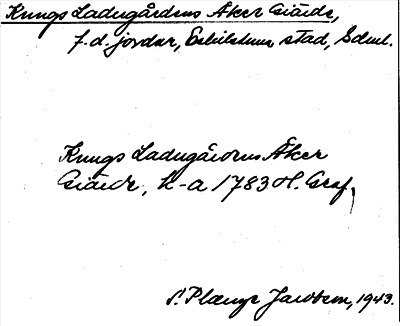 Kungs Ladugårdens Åker Giärde,
f.d. jordar, Eskilstuna stad, Sdml.
Kungs Ladugårdens Åker
Giärde, k-a 1783 H. Graf,
S. Plænge Jacobson, 1943.